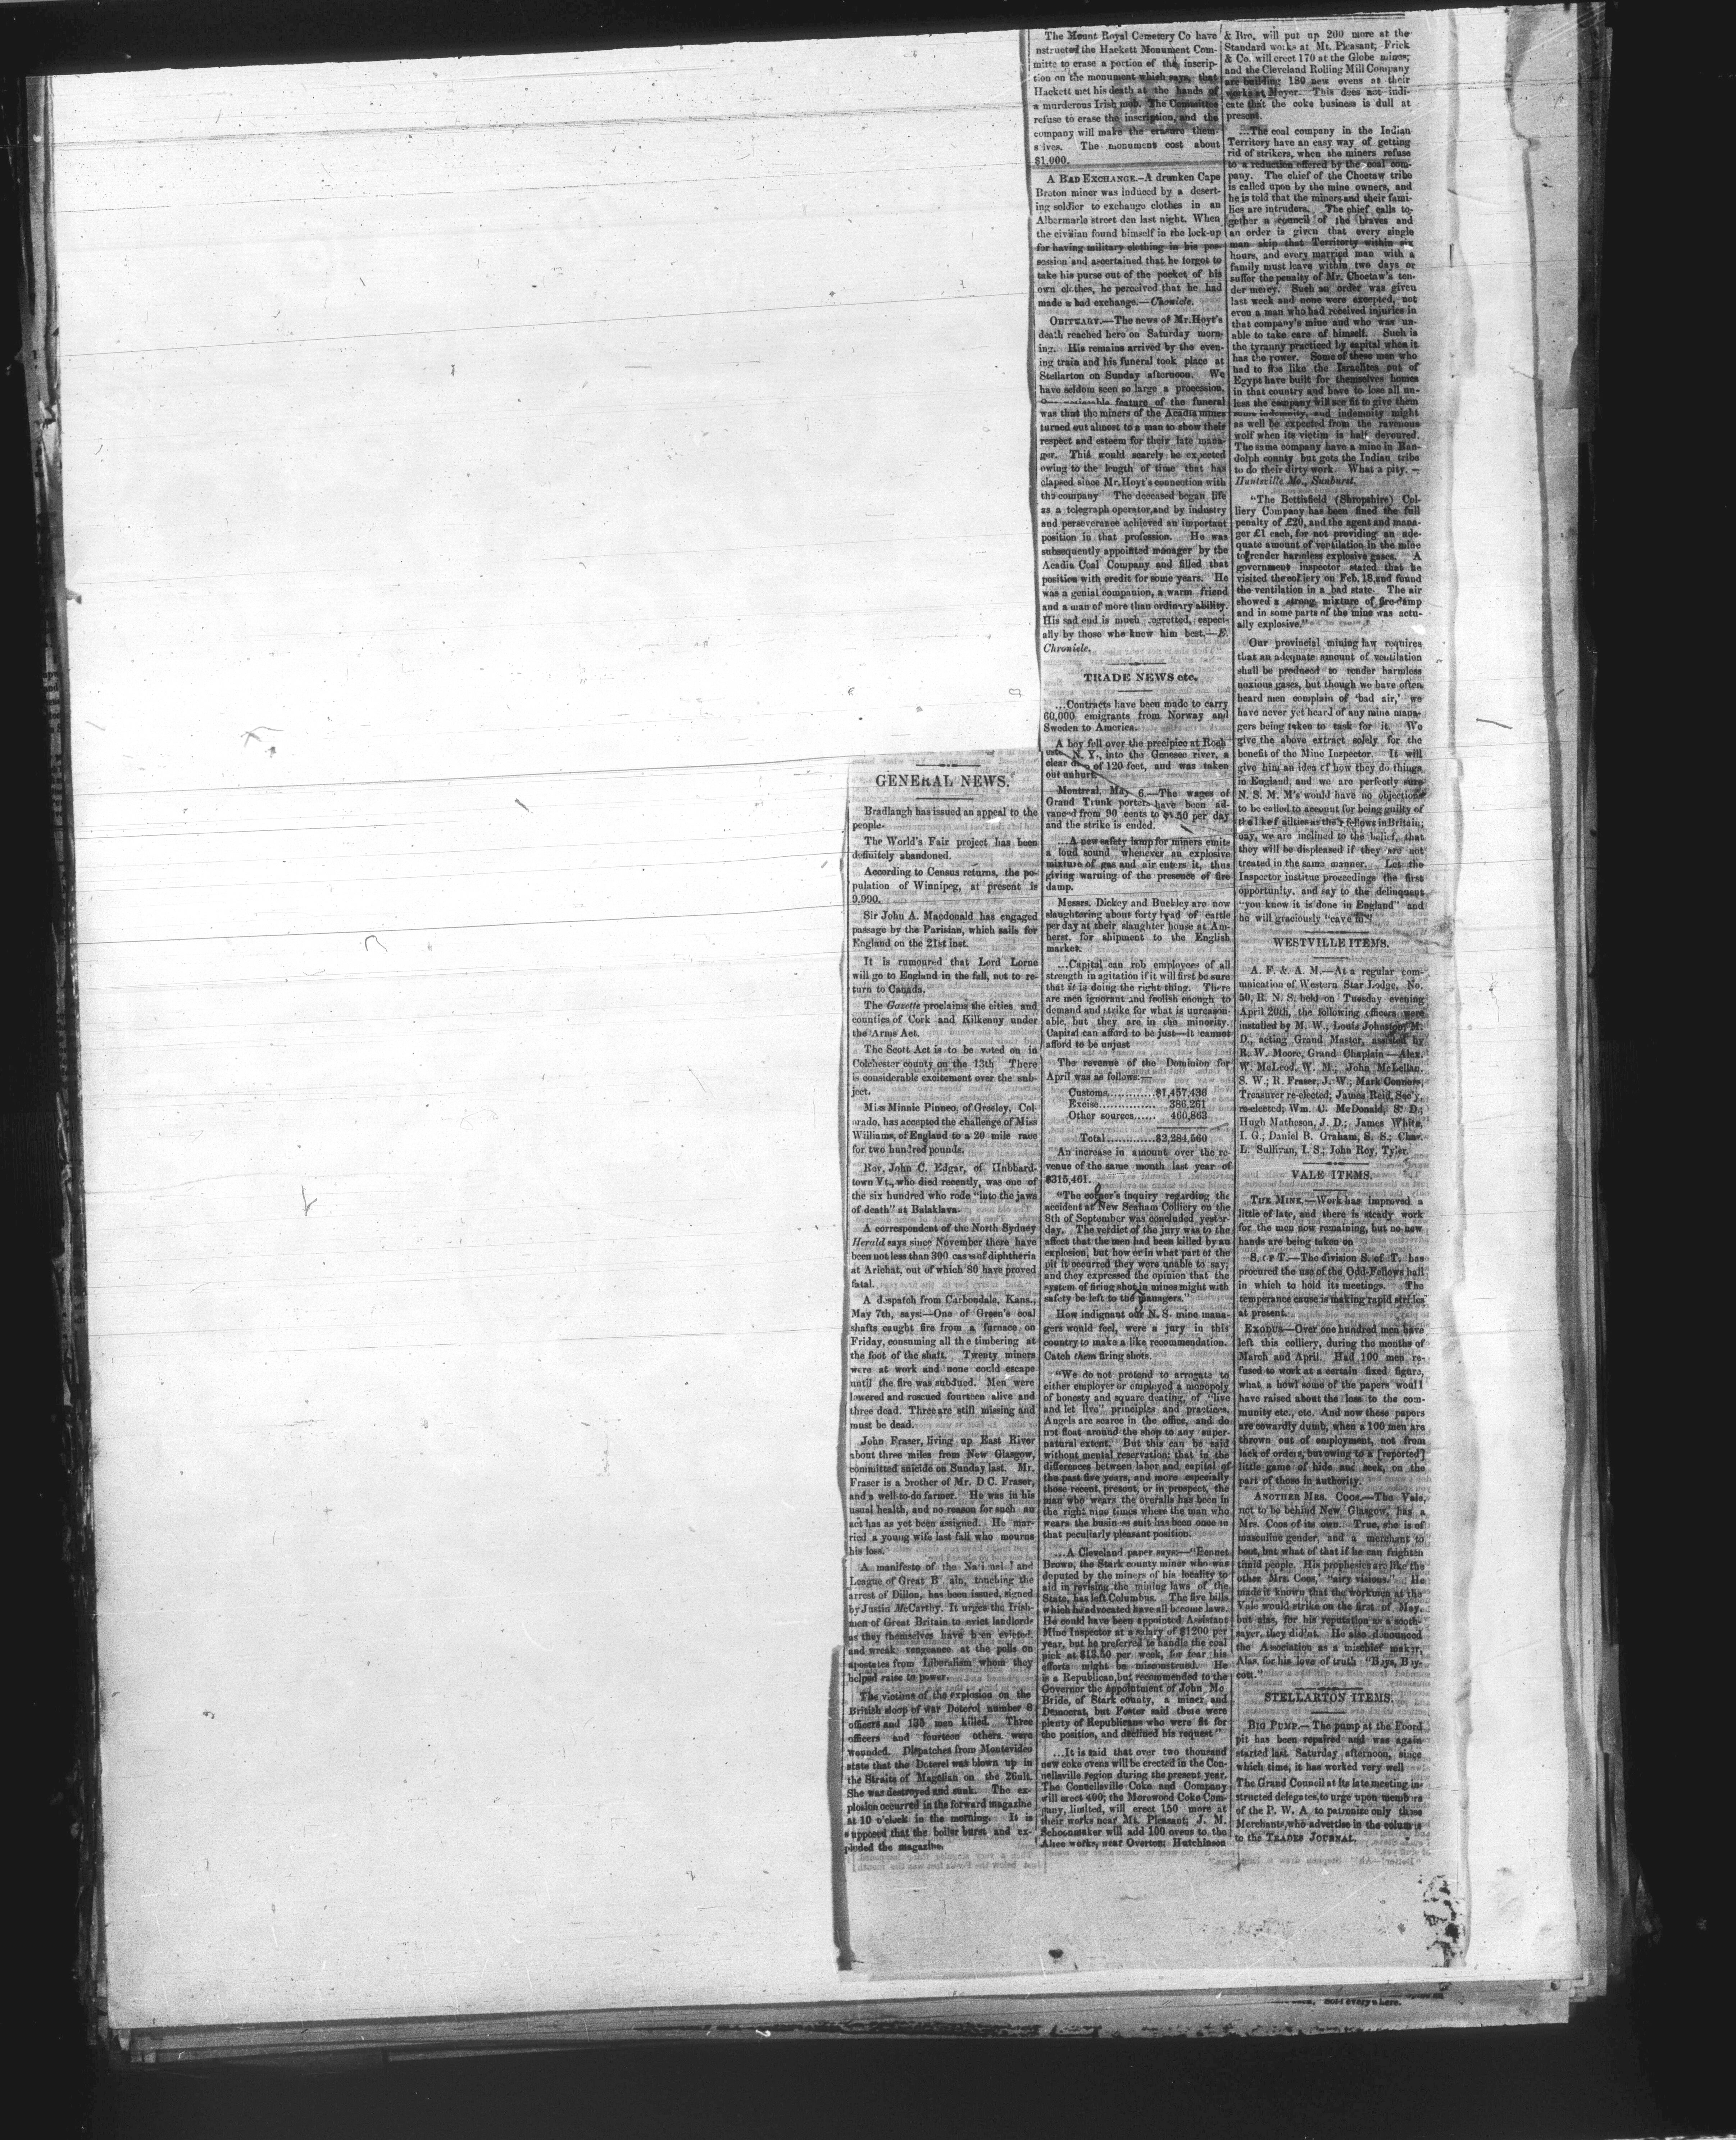 GENERAL NEWS.
Bradlaugh has issued an appeal to the
people.
The World's Fair project has been
definitely abandoned.
According to Census returns, the po-
pulation of Winnipeg, at present is
9,990.
Sir John A. Macdonald has engaged
passage by the Parisian, which sails for
England on the 21st inst.
It is rumoured that Lord Lorne
will go to England in the fall, not to re-
turn to Canada.
The Gazette proclaims the cities and
counties of Cork and Kilkenny under
the Arms Act.
The Scott Act is to be voted on in
Colchester county on the 13th. There
is considerable excitement over the sub-
ject.
Miss Minnie Pinneo, of Greeley, Col-
orado, has accepted the challenge of Miss
Williams, of England to a 20 mile race
for two hundred pounds.
Rev. John C. Edgar, of Hubbard-
town Vt., who died recently, was one of
the six hundred who rode "into the jaws
of death" at Balaklava.
A correspondent of the North Sydney
Herald says since November there have
been not less than 300 cases of diphtheria
at Arichat, out of which 80 have proved
fatal.
A despatch from Carbondale, Kans.,
May 7th, says:—One of Green's coal
shafts caught fire from a furnace on
Friday, consuming all the timbering at
the foot of the shaft. Twenty miners
were at work and none could escape
until the fire was subdued. Men were
lowered and rescued fourteen alive and
three dead. Three are still missing and
must be dead.
John Fraser, living up East River
about three miles from New Glasgow,
committed suicide on Sunday last. Mr.
Fraser is a brother of Mr. D. C. Fraser,
and a well-to-do farmer. He was in his
usual health, and no reason for such an
act has as yet been assigned. He mar-
ried a young wife last fall who mourns
his loss.
A manifesto of the Land
League of Great B ain, touching the
arrest of Dillon, has been issued, signed
by Justin McCarthy. It urges the Irish-
men of Great Britain to evict landlords
as they themselves have been evicted,
and wreak vengeance at the polls on
apostates from Liberalism whom they
helped raise to power.
The victims of the explosion on the
British sloop of war Doterel number 8
officers and 135 men killed. Three
officers and fourteen others were
wounded. Dispatches from Montevideo
state that the Doterel was blown up in
the Straits of Magellan on the 26ult.
She was destroyed and sunk. The ex-
plosion occurred in the forward magazine
at 10 o'clock in the morning. It is
supposed that the boiler burst and ex-
ploded the magazine.
The Mount Royal Cemetery Co have
nstructed the Hackett Monument Com-
mitte to erase a portion of the inscrip-
tion on the monument which says, that
Hackett met his death at the hands of
a murderous Irish mob. The Committee
refuse to erase the inscription, and the
company will make the erasure them-
s lves. The monument cost about
$1,000.
A BAD EXCHANGE.—A drunken Cape
Breton miner was induced by a desert-
ing soldier to exchange clothes in an
Albermarle street den last night. When
the civilian found himself in the lock-up
for having military clothing in his pos-
session and ascertained that he forgot to
take his purse out of the pocket of his
own clothes, he perceived that he had
made a bad exchange.—Chonicle.
OBITUARY.—The news of Mr. Hoyt's
death reached here on Saturday morn-
ing. His remains arrived by the even-
ing train and his funeral took place at
Stellarton on Sunday afternoon. We
have seldom seen so large a procession.
feature of the funeral
was that the miners of the Acadia mines
turned out almost to a man to show their
respect and esteem for their late mana-
ger. This would scarely be expected
owing to the length of time that has
elapsed since Mr. Hoyt's connection with
the company The deceased began life
as a telegraph operator, and by industry
and perseverance achieved an important
position in that profession. He was
subsequently appointed manager by the
Acadia Coal Company and filled that
position with credit for some years. He
was a genial companion, a warm friend
and a man of more than ordinary ability.
His sad end is much regretted, especi-
ally by those who knew him best.—E.
Chronicle.
TRADE NEWS etc.
...Contracts have been made to carry
60,000 emigrants from Norway and
Sweden to America.
A boy fell over the precipice at Roch
N. Y., into the Genesee river, a
clear of 120 feet, and was taken
out unhurt.
Montreal, May 6.—The wages of
Grand Trunk porters have been ad-
vanced from 90 cents to $1.50 per day
and the strike is ended.
...A new safety lamp for miners emits
a loud sound whenever an explosive
mixture of gas and air enters it, thus
giving warning of the presence of fire
damp.
Messrs. Dickey and Buckley are now
slaughtering about forty head of cattle
per day at their slaughter house at Am-
herst, for shipment to the English
market.
...Capital can rob employees of all
strength in agitation if it will first be sure
that it is doing the right thing. There
are men ignorant and foolish enough to
demand and strike for what is unreason-
able, but they are in the minority.
Capital can afford to be just—it cannot
afford to be unjust
The revenue of the Dominion for
April was as follows:—
Customs............$1,457,436
Excise............... 386,261
Other sources...... 460,863
Total............$2,284,560
An increase in amount over the re-
venue of the same month last year of
$315,461.
"The corner's inquiry regarding the
accident at New Seaham Colliery on the
8th of September was concluded yester-
day. The verdict of the jury was to the
affect that the men had been killed by an
explosion, but how or in what part of the
pit it occurred they were unable to say;
and they expressed the opinion that the
system of firing shot in mines might with
safety be left to the managers."
How indignant our N. S. mine mana-
gers would feel, were a jury in this
country to make a like recommendation.
Catch them firing shots.
"We do not pretend to arrogate to
either employer or employed a monopoly
of honesty and square dealing, of "live
and let live" principles and practices.
Angels are scarce in the office, and do
not float around the shop to any super-
natural extent. But this can be said
without mental reservation; that in the
differences between labor and capital of
the past five years, and more especially
those recent, present, or in prospect, the
man who wears the overalls has been in
the right nine times where the man who
wears the business suit has been once in
that peculiarly pleasant position.
...A Cleveland paper says:—"Bennet
Brown, the Stark county miner who was
deputed by the miners of his locality to
aid in revising the mining laws of the
State, has left Columbus. The five bills
which he advocated have all become laws.
He could have been appointed Assistant
Mine Inspector at a salary of $1200 per
year, but he preferred to handle the coal
pick at $13.50 per week, for fear his
efforts might be misconstrued. He
is a Republican, but recommended to the
Governor the appointment of John Mc
Bride, of Stark county, a miner and
Democrat, but Foster said there were
plenty of Republicans who were fit for
the position, and declined his request"
...It is said that over two thousand
new coke ovens will be erected in the Con-
nellsville region during the present year.
The Connellsville Coke and Company
will erect 400; the Morewood Coke Com-
pany, limited, will erect 150 more at
their works near Mt. Pleasant; J. M.
Schoonmaker will add 100 ovens to the
Alice works, near Overton; Hutchinson
& Bro. will put up 200 more at the
Standard works at Mt. Pleasant; Frick
& Co. will erect 170 at the Globe mines;
and the Cleveland Rolling Mill Company
are building 180 new ovens at their
works at Moyer. This does not indi-
cate that the coke business is dull at
present.
...The coal company in the Indian
Territory have an easy way of getting
rid of strikers, when the miners refuse
to a reduction offered by the coal com-
pany. The chief of the Choctaw tribe
is called upon by the mine owners, and
he is told that the miners and their fami-
lies are intruders. The chief calls to-
gether a council of the braves and
an order is given that every single
man skip that Territorty within six
hours, and every married man with a
family must leave within two days or
suffer the penalty of Mr. Choctaw's ten-
der mercy. Such an order was given
last week and none were excepted, not
even a man who had received injuries in
that company's mine and who was un-
able to take care of himself. Such is
the tyranny practiced by capital when it
has the power. Some of these men who
had to flee like the Israelites out of
Egypt have built for themselves homes
in that country and have to lose all un-
less the company will see fit to give them
some indemnity, and indemnity might
as well be expected from the ravenous
wolf when its victim is half devoured.
The same company have a mine in Ran-
dolph county but gets the Indian tribe
to do their dirty work. What a pity.—
Huntsville Mo., Sunburst.
"The Bettisfield (Shropshire) Col-
liery Company has been fined the full
penalty of £20, and the agent and mana-
ger £1 each, for not providing an ade-
quate amount of ventilation in the mine
to render harmless explosive gases. A
government inspector stated that he
visited the colliery on Feb. 18, and found
the ventilation in a bad state. The air
showed a strong mixture of fire-damp
and in some parts of the mine was actu-
ally explosive."
Our provincial mining law requires
that an adequate amount of ventilation
shall be produced to render harmless
noxious gases, but though we have often
heard men complain of 'bad air,' we
have never yet heard of any mine mana-
gers being taken to task for it. We
give the above extract solely for the
benefit of the Mine Inspector. It will
give him an idea of how they do things
in England, and we are perfectly sure
N. S. M. M's would have no objections
to be called to account for being guilty of
the like failties as the'r fellows in Britain;
nay, we are inclined to the belief, that
they will be displeased if they are not
treated in the same manner. Let the
Inspector institue proceedings the first
opportunity, and say to the delinquent
"you know it is done in England" and
he will graciously "cave in."
WESTVILLE ITEMS.
A. F. & A. M.—At a regular com-
munication of Western Star Lodge, No.
50, R. N. S. held on Tuesday evening
April 20th, the following officers were
installed by M. W., Louis Johnston, M.
D., acting Grand Master, assisted by
R. W. Moore, Grand Chaplain—Alex.
W. McLeod, W. M.; John McLellan,
S. W.; R. Fraser, J. W.; Mark Conners,
Treasurer re-elected; James Reid, Sec'y,
re-elected; Wm. C. McDonald, S. D.;
Hugh Matheson, J. D.; James White,
I. G.; Daniel B. Graham, S. S.; Chas.
L. Sullivan, I. S.; John Roy, Tyler.
VALE ITEMS.
THE MINE.—Work has improved a
little of late, and there is steady work
for the men now remaining, but no new
hands are being taken on
S. OF T.—The division S. of T. has
procured the use of the Odd-Fellows hall
in which to hold its meetings. The
temperance cause is making rapid strides
at present.
EXODUS—Over one hundred men have
left this colliery, during the months of
March and April. Had 100 men re-
fused to work at a certain fixed figure,
what a howl some of the papers would
have raised about the loss to the com-
munity etc., etc. And now these papers
are cowardly dumb, when a 100 men are
thrown out of employment, not from
lack of orders, but owing to a [reported]
little game of hide and seek, on the
part of those in authority.
ANOTHER MRS. COOS.—The Vale,
not to be behind New Glasgow, has a
Mrs. Coos of its own. True, she is of
masculine gender, and a merchant to
boot, but what of that if he can frighten
timid people. His prophesies are like the
other Mrs. Coos, "airy visions." He
made it known that the workmen at the
Vale would strike on the first of May,
but alas, for his reputation as a sooth-
sayer, they did'nt. He also denounced
the Association as a mischief maker,
Alas, for his love of truth "Boys, Boy-
cott."
STELLARTON ITEMS.
BIG PUMP.—The pump at the Foord
pit has been repaired and was again
started last Saturday afternoon, since
which time, it has worked very well
The Grand Council at its late meeting in-
structed delegates, to urge upon members
of the P. W. A. to patronize only those
Merchants, who advertise in the columns
to the TRADES JOURNAL.